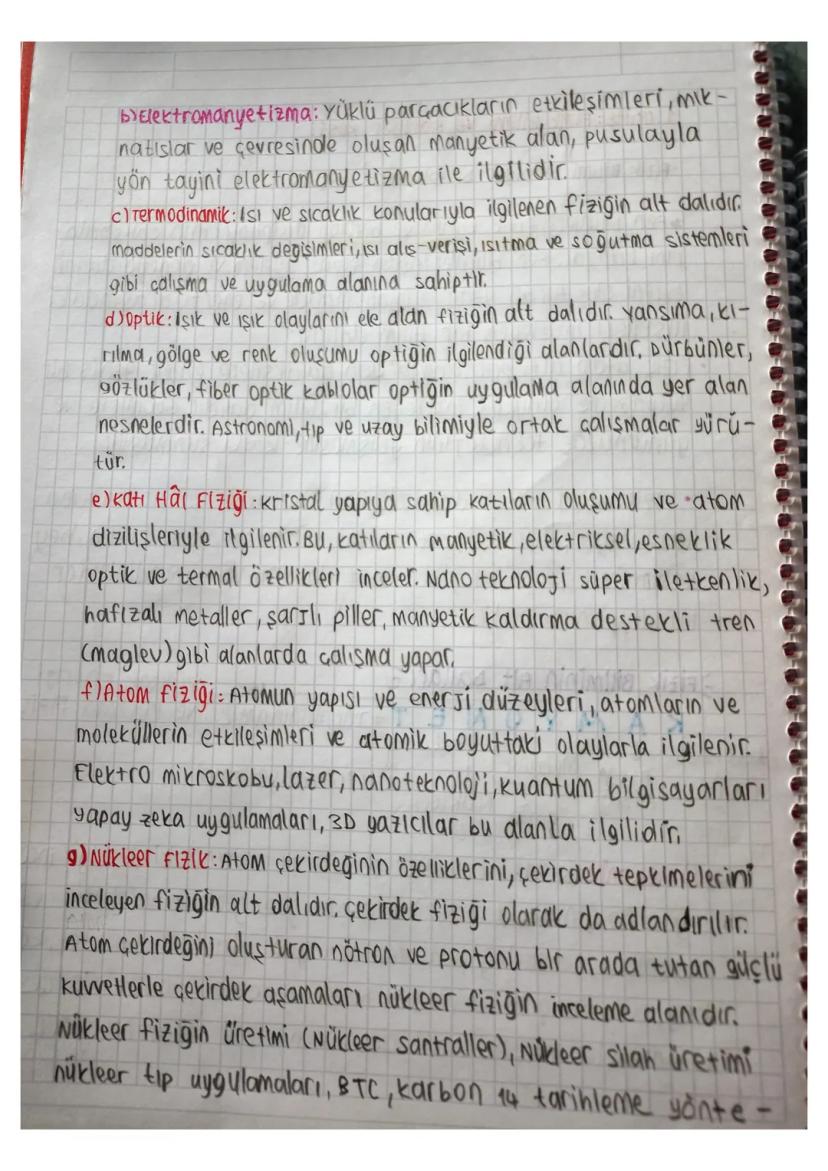 b)Elektromanyetizma: Yüklü parçacıkların etkileşimleri, mık-
natıslar ve çevresinde oluşan manyetik alan, pusulayla
yön tayini elektromanyetizma ile ilgilidir.
c)Termodinamik: Isı ve sıcaklık konularıyla ilgilenen fiziğin alt dalıdır.
maddelerin sıcaklık değişimleri, ısı alış-verişi, ısıtma ve soğutma sistemleri
gibi çalışma ve uygulama alanına sahiptir.
d)Optik: Işık ve ışık olaylarını ele alan fiziğin alt dalıdır. yansıma, kı-
rılma, gölge ve renk oluşumu optiğin ilgilendiği alanlardır. Dürbünler,
gözlükler, fiber optik kablolar optiğin uygulama alanında yer alan
nesnelerdir. Astronomi, tıp ve uzay bilimiyle ortak çalışmalar yürü-
tür.
e)Katı Hâl Fiziği: kristal yapıya sahip katıların oluşumu ve atom
dizilişleriyle ilgilenir. Bu, katıların manyetik, elektriksel, esneklik
optik ve termal özellikleri inceler. Nano teknoloji süper iletkenlik,
hafızalı metaller, şarjlı piller, manyetik kaldırma destekli tren
(maglev) gibi alanlarda çalışma yapar.
f)Atom fiziği: Atomun yapısı ve enerji düzeyleri, atomların ve
moleküllerin etkileşimleri ve atomik boyuttaki olaylarla ilgilenir.
Elektro mikroskobu, lazer, nanoteknoloji, kuantum bilgisayarları
yapay zeka uygulamaları, 3D yazıcılar bu alanla ilgilidir.
g)Nükleer fizik: Atom çekirdeğinin özelliklerini, çekirdek tepkimelerini
inceleyen fiziğin alt dalıdır. çekirdek fiziği olarak da adlandırılır.
Atom çekirdeğini oluşturan nötron ve protonu bir arada tutan güçlü
kuvvetlerle çekirdek aşamaları nükleer fiziğin inceleme alanıdır.
Nükleer fiziğin üretimi (Nükleer santraller), Nükleer silah üretimi
nükleer tıp uygulamaları, BTC, karbon 14 tarihleme yönte-